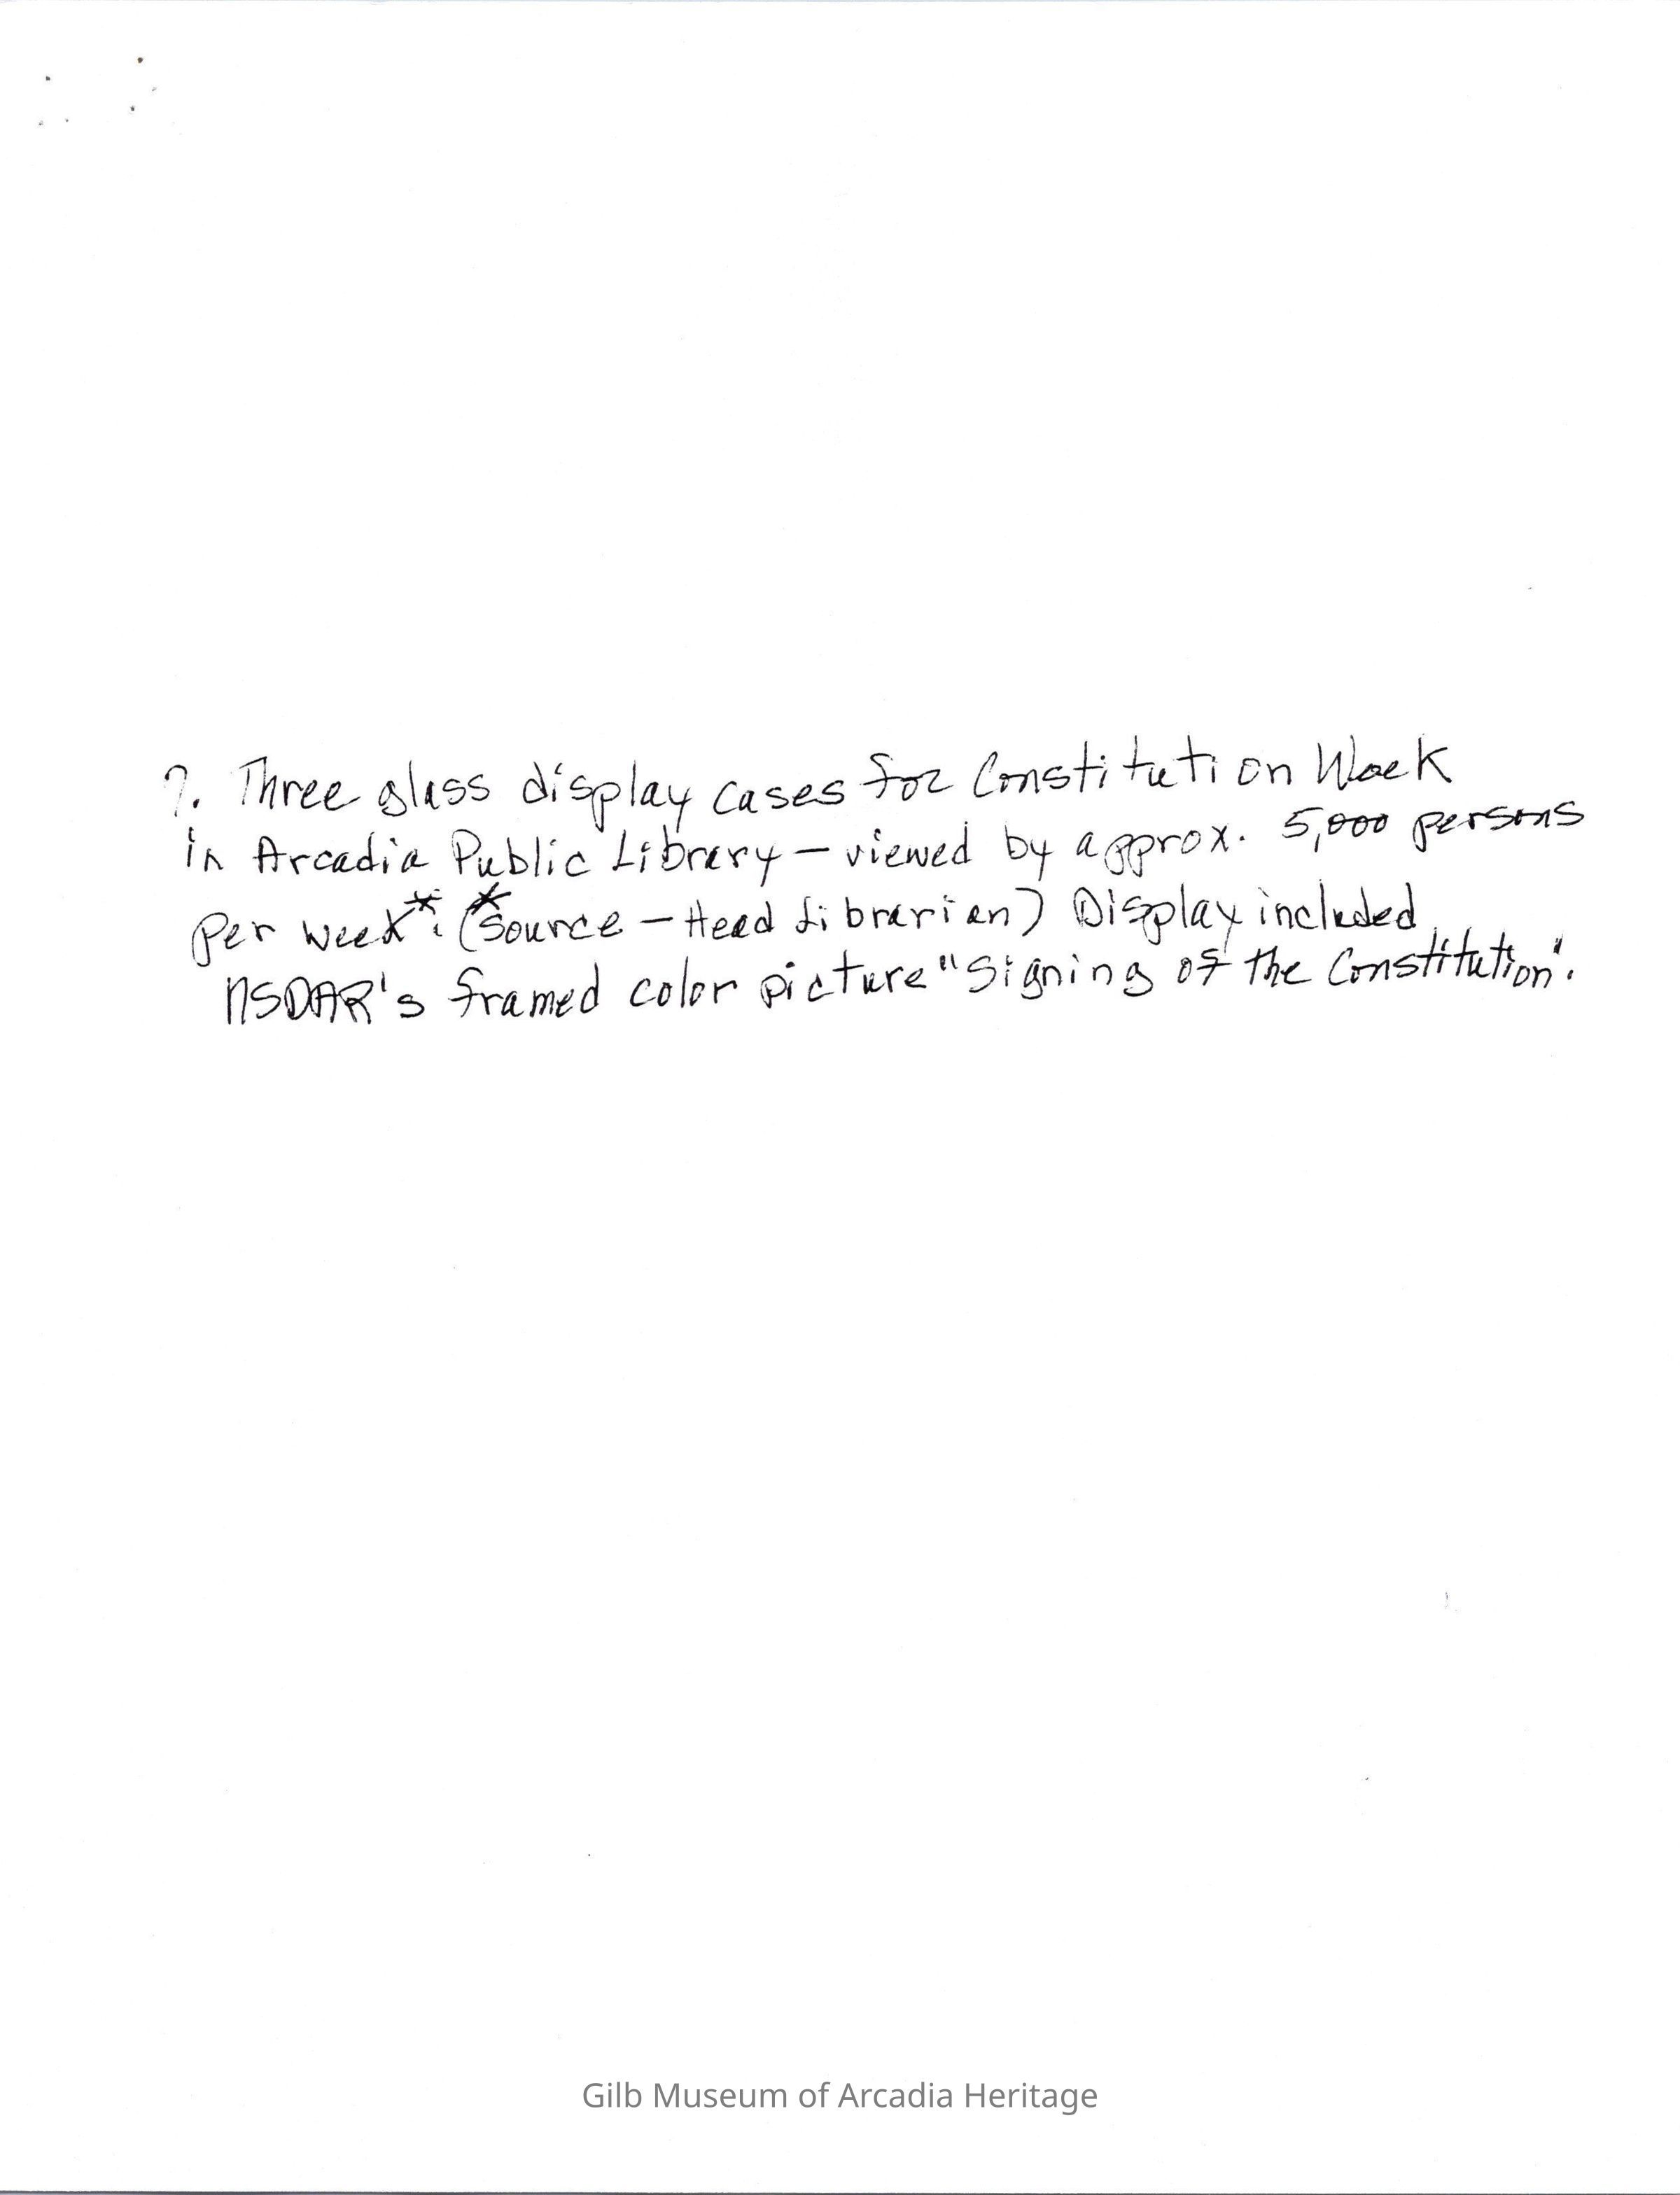 7. Three glass display cases for Constitution Week
in Arcadia Public Library — viewed by approx. 5,000 persons
per week*. (*Source — Head Librarian) Display included
NSDAR's framed color picture "Signing of the Constitution".
Gilb Museum of Arcadia Heritage